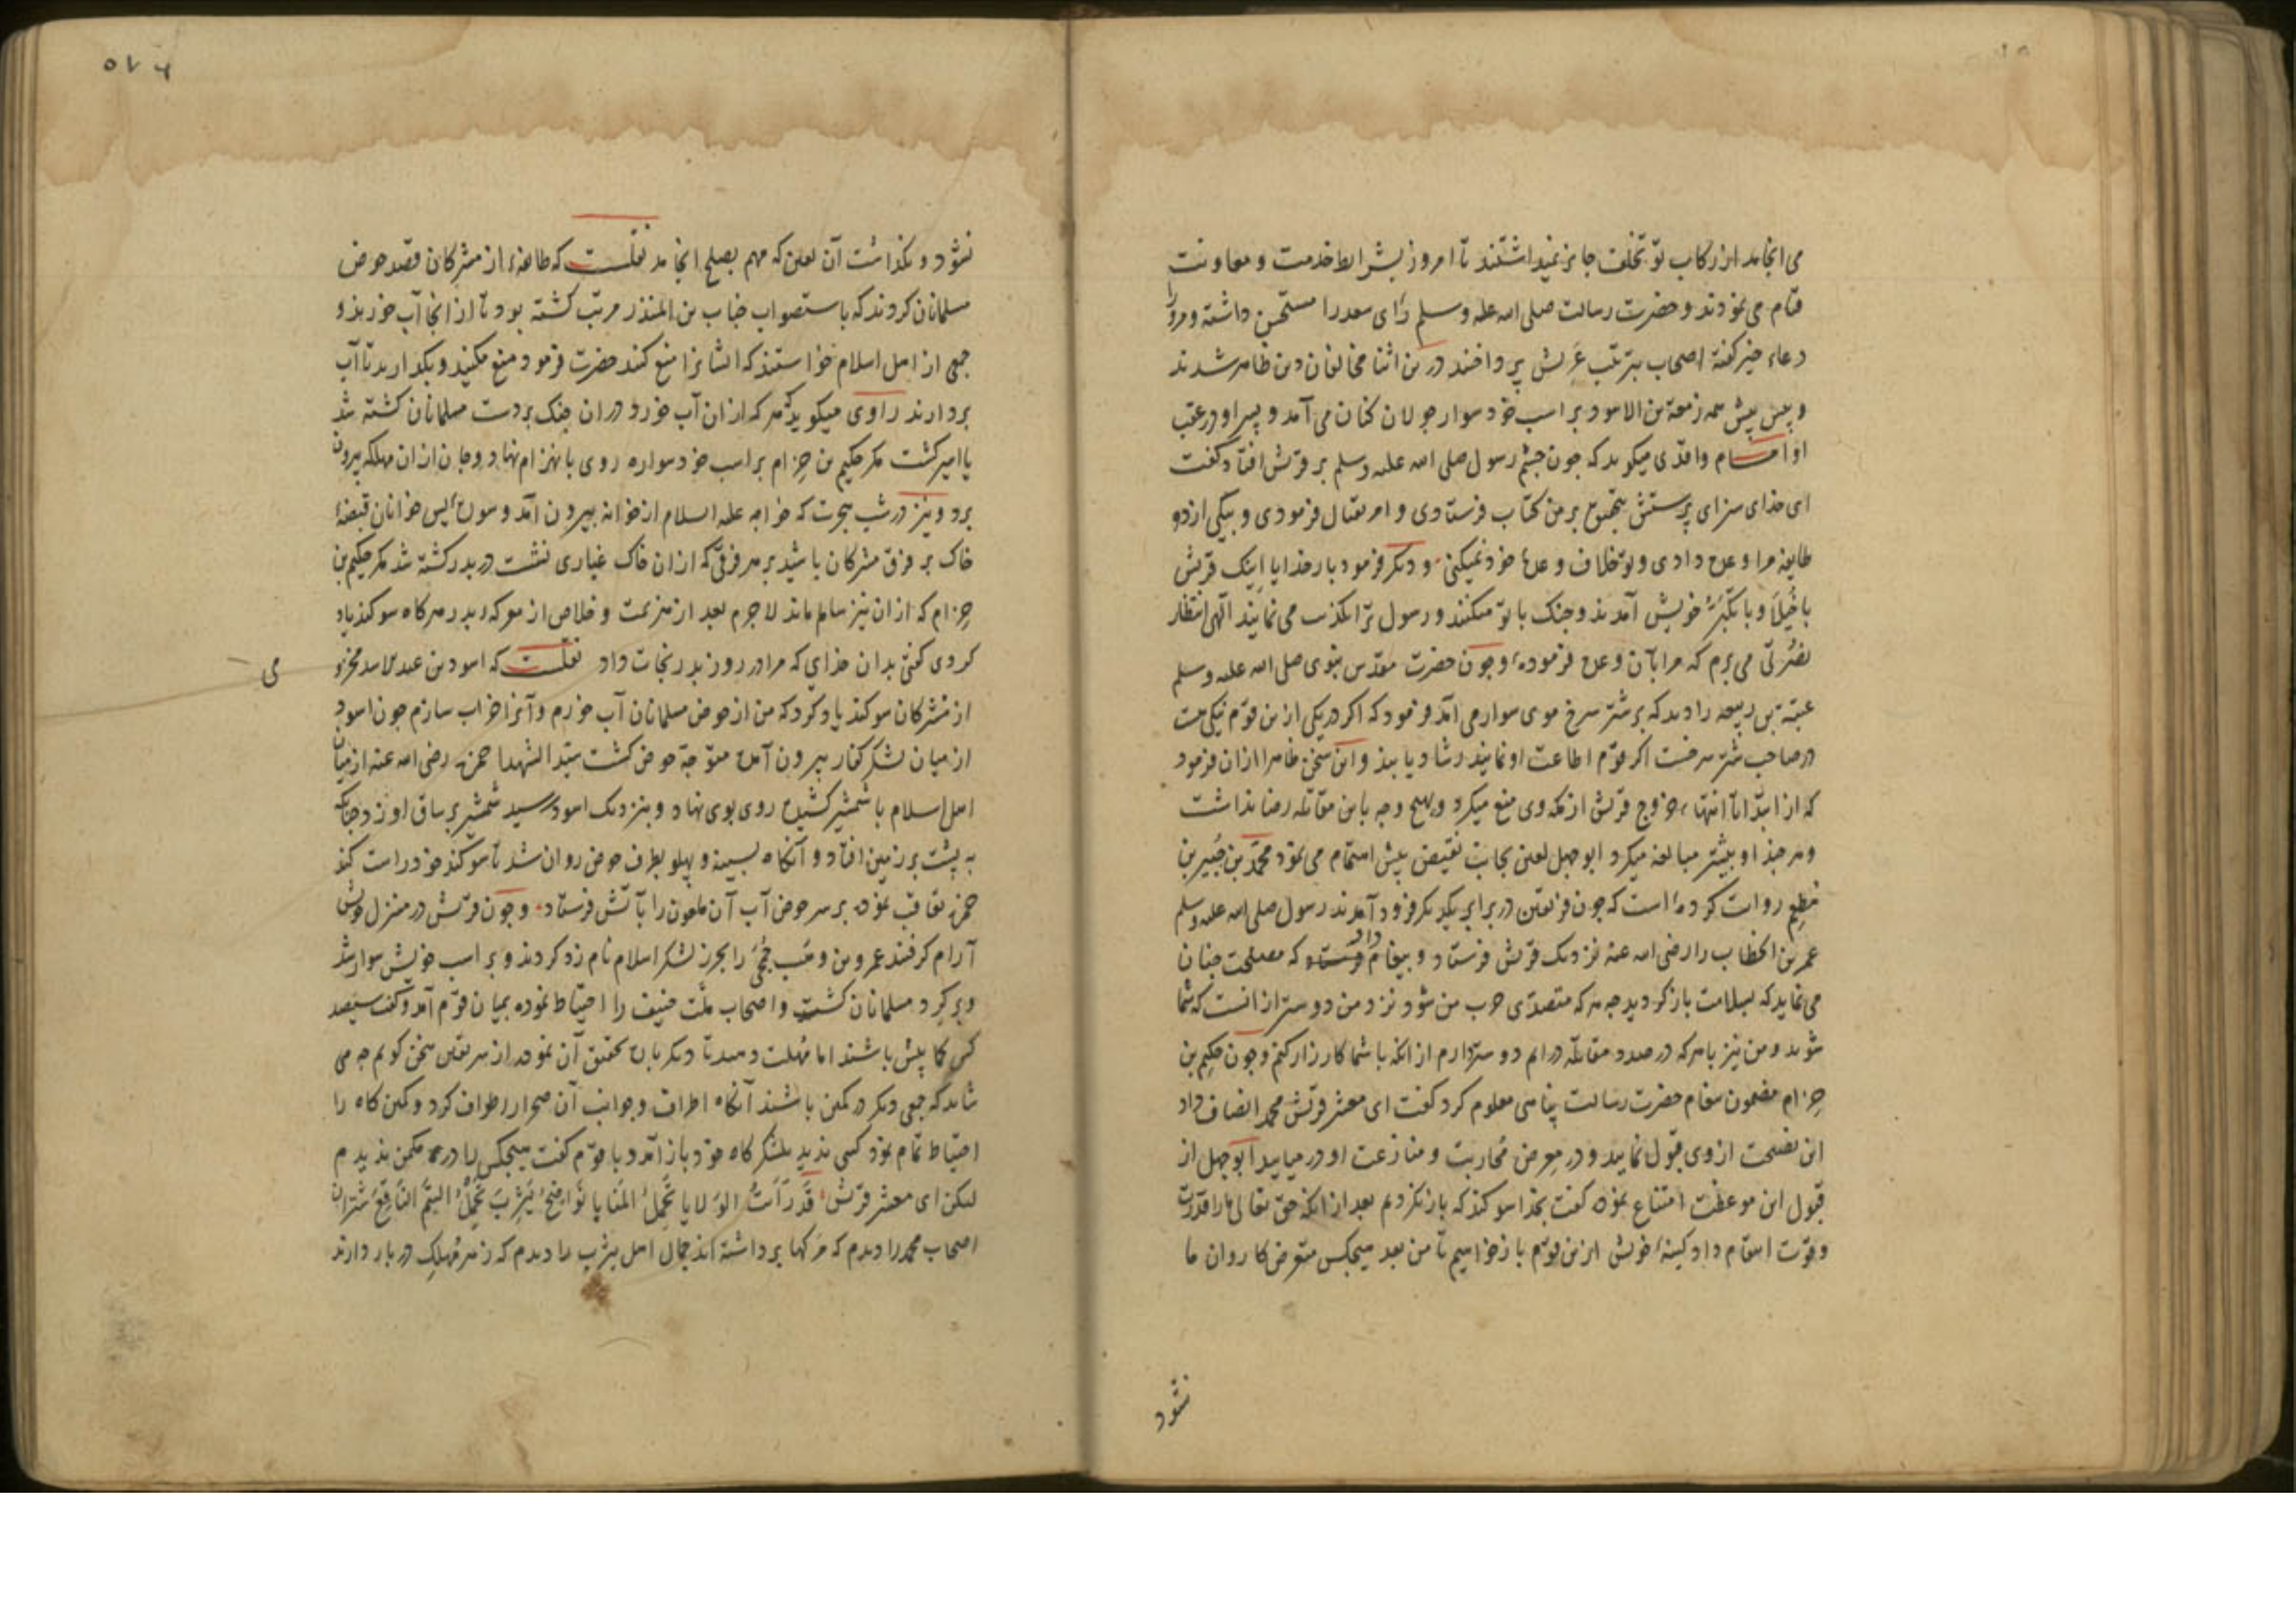 می انجامد از رکاب تو تخلف جایز نمیداشتند تا امروز بشرایط خدمت و معاونت
قیام می نمودند و حضرت رسالت صلی الله علیه وسلم رأی سعد را مستحسن داشته و مرورا
دعاء خیر گفته اصحاب بترتیب عریش پرداختند درین اثنا مخالفان دین ظاهر شدند
و پیش پیش همه زمعة بن الاسود بر اسب خود سوار جولان کنان می آمد و پسر او در عقب
او امام واقدی میگوید که چون چشم رسول صلی الله علیه وسلم بر قریش افتاد گفت
ای خدای سزای پرستش بتحقیق بر من کتاب فرستادی و امر بقتال فرمودی و بیکی از دو
طایفه مرا وعده دادی و تو خلاف وعده خود نمیکنی و دیگر فرمود بار خدایا اینک قریش
با خیلا و با تکبر خویش آمدند و جنک با تو میکنند و رسول ترا تکذیب می نمایند الهی انتظار
نصرتی می برم که مرا بآن وعده فرموده و چون حضرت مقدس نبوی صلی الله علیه وسلم
عتبة بن ربیعه را دید که بر شتر سرخ موی سوار می آمد فرمود که اکر در یکی ازین قوم نیکی هست
در صاحب شتر سرخست اکر قوم اطاعت او نمایند رشاد یابند و این سخن ظاهرا ازان فرمود
که از ابتدا تا انتها خروج قریش از مکه وی منع میکرد و بهیچ وجه باین مقاتله رضا نداشت
و هر چند او بیشتر مبالغه میکرد ابوجهل لعین بجانب نقیض بیش اهتمام می نمود محمد بن جبیر بن
مطعم روایت کرده است که چون فریقین در برابر یکدیکر فرود آمدند رسول صلی الله علیه وسلم
عمر بن الخطاب را رضی الله عنه نزدیک قریش فرستاد و پیغام داد که مصلحت چنان
می نماید که بسلامت باز کردید چه هر که متصدی حرب من شود نزد من دوستر ازانست که شما
شوید و من نیز با هر که در صدد مقاتله درایم دوستر دارم از انکه با شما کارزار کنم و چون حکیم بن
حزام مضمون پیغام حضرت رسالت پناهی معلوم کرد گفت ای معشر قریش محمد انصاف داد
این نصیحت از وی قبول نمایید و در معرض محاربت و منازعت او در میایید ابوجهل از
قبول این موعظت امتناع نموده گفت بخدا سوکند که باز نکردیم بعد از انکه حق تعالی ما را قدرت
و قوت انتقام داد کینه خویش ازین قوم باز خواهیم تا من بعد هیچکس متعرض کاروان ما
نشود
۵۷۶
نشود و نگذاشت آن لعین که مهم بصلح انجامد نقلست که طایفه از مشرکان قصد حوض
مسلمانان کردند که باستصواب خباب بن المنذر مرتب کشته بود تا از انجا آب خورند و
جمعی از اهل اسلام خواستند که ایشانرا منع کنند حضرت فرمود منع مکنید و بگذارید تا آب
بردارند راوی میکوید هر که ازان آب خورد دران جنک بر دست مسلمانان کشته شد
یا اسیر کشت مکر حکیم بن حزام بر اسب خود سواره روی بانهزام نهاد و جان ازان مهلکه بیرون
برد و نیز در شب هجرت که خواجه علیه السلام از خانه بیرون آمد و سوره یس خوانان قبضه
خاک بر فرق مشرکان پاشید بر هر فرقی که ازان خاک غباری نشست در بدر کشته شد مکر حکیم بن
حزام که ازان نیز سالم ماند لاجرم بعد از هزیمت و خلاص از معرکه بدر هر کاه سوکند یاد
کردی گفتی بدان خدای که مرا در روز بدر نجات داد نقلست که اسود بن عبدالاسد مخزو
می
از مشرکان سوکند یاد کرد که من از حوض مسلمانان آب خورم و آنرا خراب سازم چون اسود
از میان لشکر کفار بیرون آمده متوجه حوض کشت سید الشهدا حمزه رضی الله عنه از میان
اهل اسلام با شمشیر کشیده روی بوی نهاد و بنزدیک اسود رسید شمشیر بر ساق او زد چنانکه
به پشت بر زمین افتاد و آنکاه بسینه و پهلو بطرف حوض روان شد تا سوکند خود راست کند
حمزه تعاقب نموده بر سر حوض آب آن ملعون را بآتش فرستاد و چون قریش در منزل خویش
آرام کرفتند عمرو بن وهب جمحی را بحرز لشکر اسلام نام زد کردند و بر اسب خویش سوار شد
و بر کرد مسلمانان کشت و اصحاب ملت حنیف را احتیاط نموده بمیان قوم آمد و گفت سیصد
کس کما بیش باشند اما مهلت دهید تا دیکر باره تحقیق آن نموده از سر یقین سخن کویم چه می
شاید که جمعی دیکر در کمین باشند آنکاه اطراف و جوانب آن صحرا را طواف کرد و کمین کاه را
احتیاط تمام نمود کسی ندید بلشکر کاه خود باز آمد و با قوم گفت هیچکس را در مکمن ندیدم
لیکن ای معشر قریش قد رأیت الولایا تحمل المنایا نواضح یثرب تحمل السم الناقع شتران
اصحاب محمد را دیدم که مرکها برداشته اند جمال اهل یثرب را دیدم که زهر مهلک در بار دارند